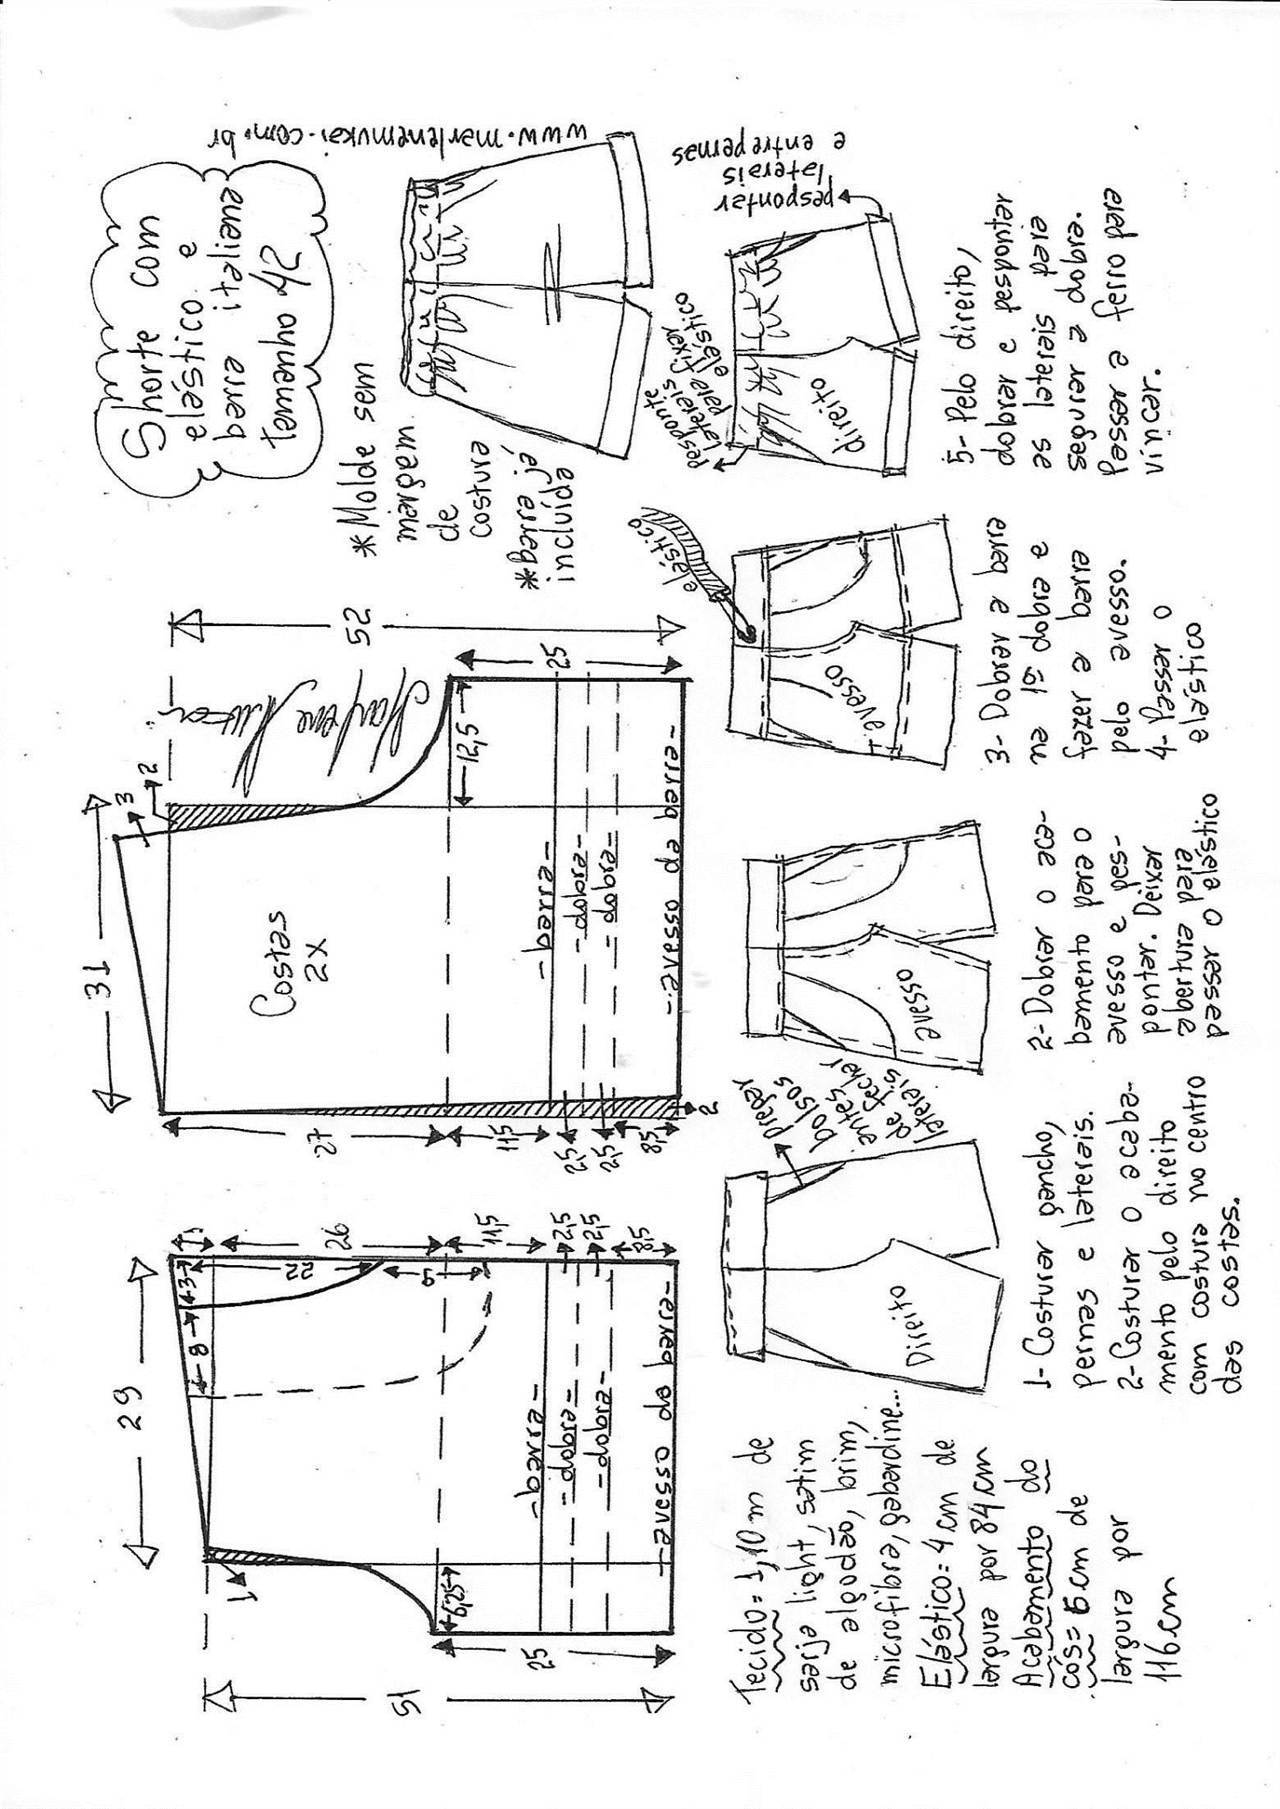 Shorte com
elástico e
barra italiana
tamanho 42
www.marlenemukai.com.br
*Molde sem
margem
de
costura
*Barra já
incluída
29
1
3
8
22
26
9
11,5
2,5
2,5
8,5
1
6,25
25
51
-barra-
-dobra-
-dobra-
-avesso da barra-
31
3
2
Costas
2x
27
11,5
2,5
2,5
8,5
2
12,5
25
52
-barra-
-dobra-
-dobra-
-avesso da barra-
Tecido= 1,10 m de
sarja light, setim
de algodão, brim,
microfibra, gabardine...
Elástico= 4 cm de
largura por 84 cm
Acabamento do
cós= 6 cm de
largura por
116 cm
Direito
pregar
bolsos
antes
de fechar
laterais
1- Costurar gancho,
pernas e laterais.
2- Costurar o acaba-
mento pelo direito
com costura no centro
das costas.
avesso
2- Dobrar o aca-
bamento para o
avesso e pes-
pontar. Deixar
abertura para
passar o elástico
elástico
avesso
3- Dobrar a barra
na 1ª dobra e
fazer a barra
pelo avesso.
4- Passar o
elástico
pesponte
laterais
para fixar
elástico
direito
pespontar
laterais
e entrepernas
5- Pelo direito,
dobrar e pespontar
as laterais para
segurar a dobra.
Passar a ferro para
vincar.